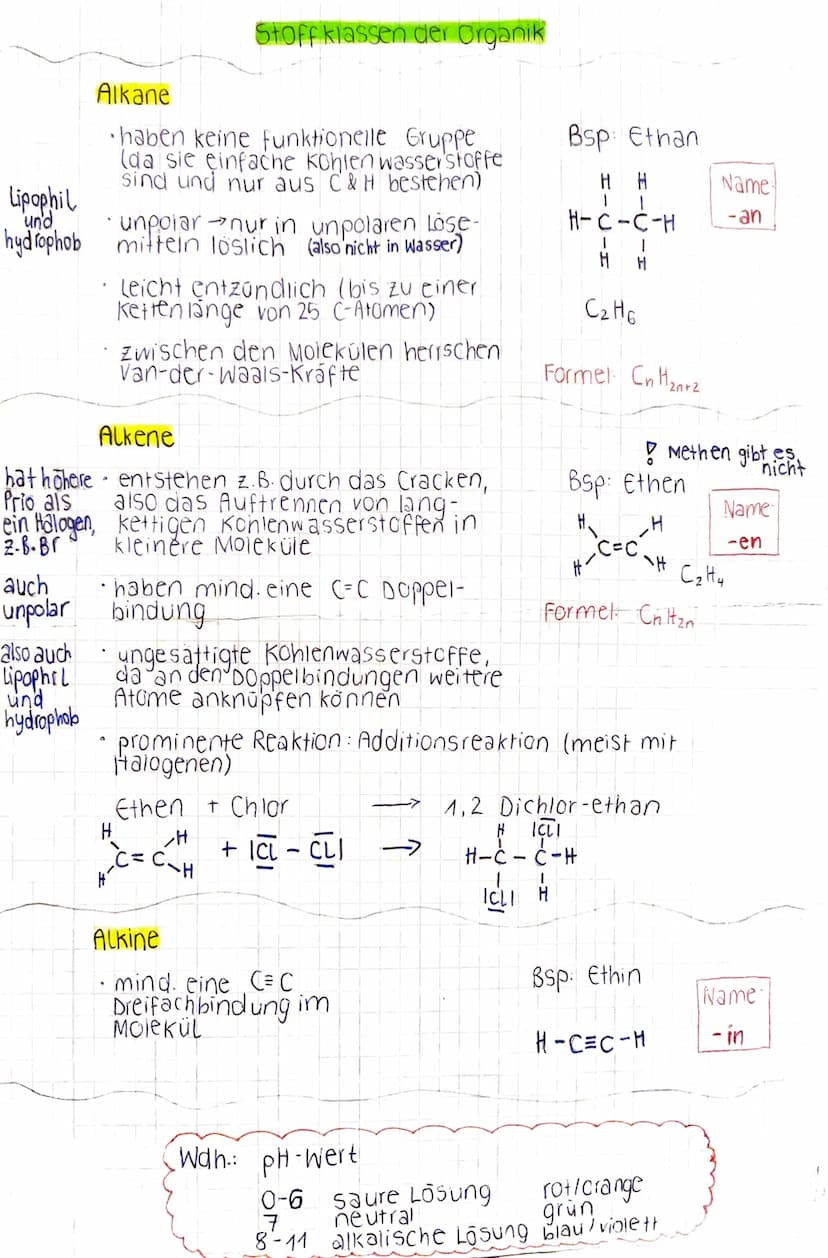 Stoffklassen der Organik
Alkane
· haben keine funktionelle Gruppe
(da sie einfache Kohlenwasserstoffe
sind und nur aus C & H bestehen)
Lipophil
und
hydrophob
· unpolar → nur in unpolaren Löse-
mitteln löslich (also nicht in Wasser)
· Leicht entzündlich (bis zu einer
Kettenlänge von 25 C-Atomen)
· zwischen den Molekülen herrschen
Van-der-Waals-Kräfte
Bsp: Ethan
H H
H-C-C-H
H H
C₂H₆
Name:
-an
Formel: CnH2n+2
Alkene
! Methen gibt es
nicht
hat höhere
Prio als
ein Halogen,
z.B. Br
auch
unpolar
also auch
Lipophil
und
hydrophob
· entstehen z.B. durch das Cracken,
also das Auftrennen von lang-
kettigen Kohlenwasserstoffen in
kleinere Moleküle
· haben mind. eine C=C Doppel-
bindung
· ungesättigte Kohlenwasserstoffe,
da an den Doppelbindungen weitere
Atome anknüpfen können
· prominente Reaktion: Additionsreaktion (meist mit
Halogenen)
Bsp: Ethen
H H
C=C
H H
C₂H₄
Name:
-en
Formel: CnH2n
Ethen + Chlor → 1,2 Dichlor-ethan
H H
C=C
H H
+ |Cl - Cl| →
H |Cl|
H-C-C-H
|Cl| H
Alkine
· mind. eine C≡C
Dreifachbindung im
Molekül
Bsp: Ethin
H-C≡C-H
Name:
-in
Wdh.: pH-Wert
0-6 saure Lösung rot/orange
7 neutral grün
8-11 alkalische Lösung blau/violett